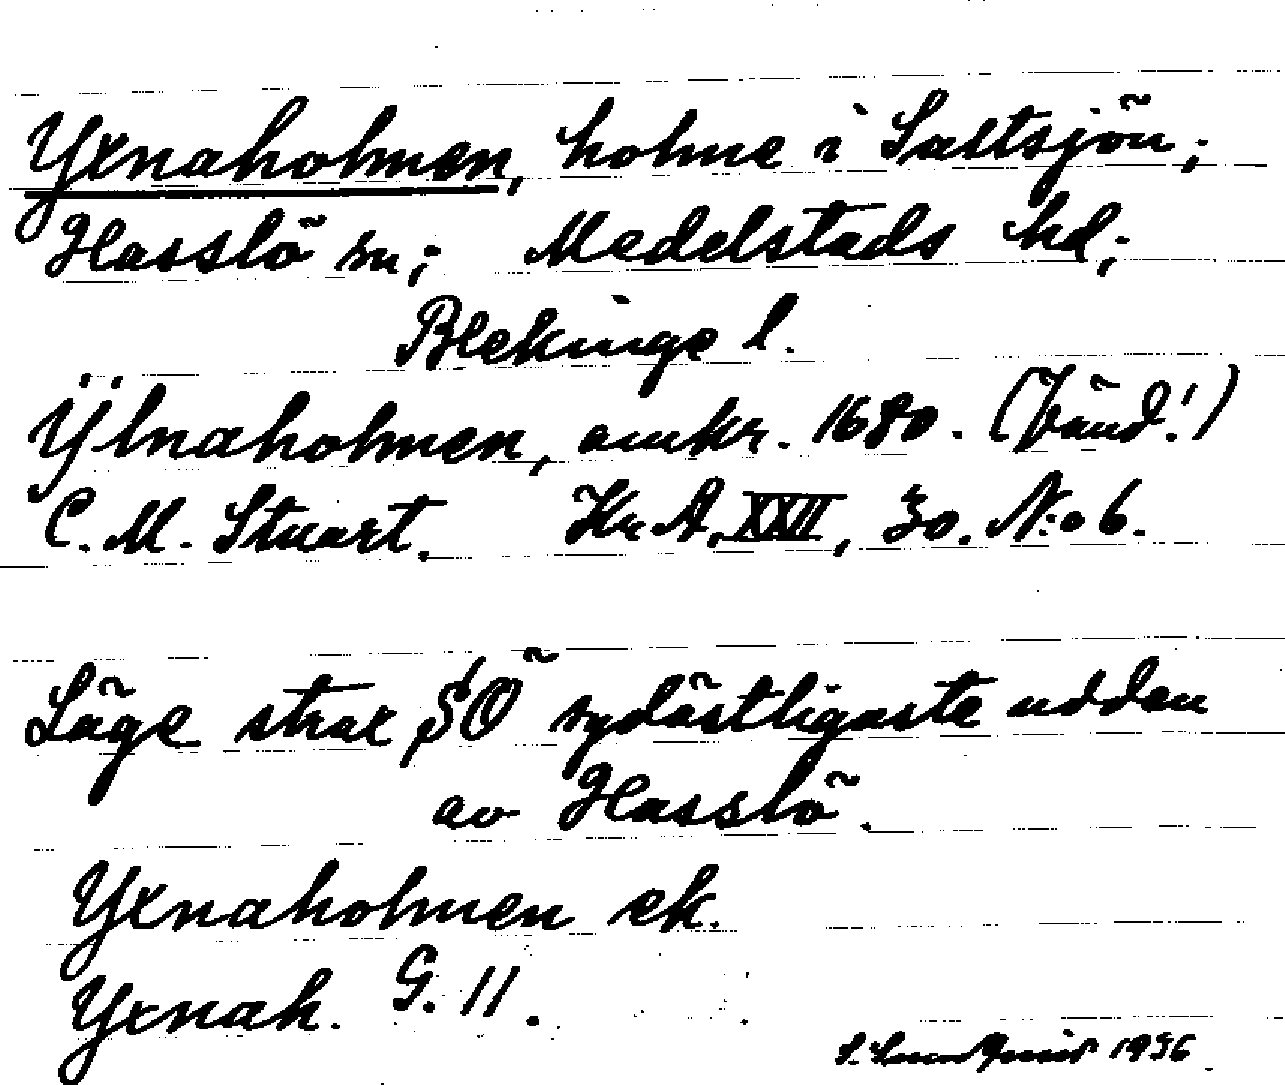 Yxnaholmen, holme i Saltsjön;
Hasslö sn; Medelstads hd;
Blekinge l.
Ÿlnaholmen, omkr. 1680. (Vänd!)
C. M. Stuart. Kr. A, XXII, 30. N:o 6.
Läge strax SO sydöstligaste udden
av Hasslö.
Yxnaholmen ek.
Yxnah. G. 11.
1956